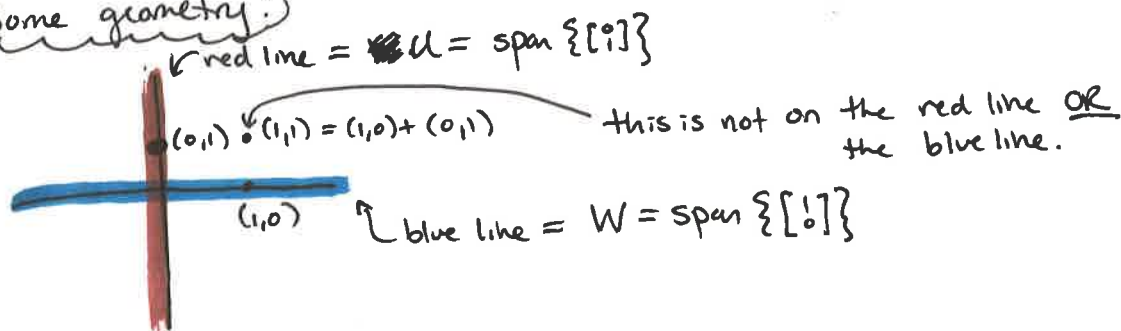 ome geometry.)
red line = U = span {[0 1]}
(0,1) (1,1) = (1,0) + (0,1)
this is not on the red line OR
the blue line.
(1,0)
blue line = W = span {[1 0]}